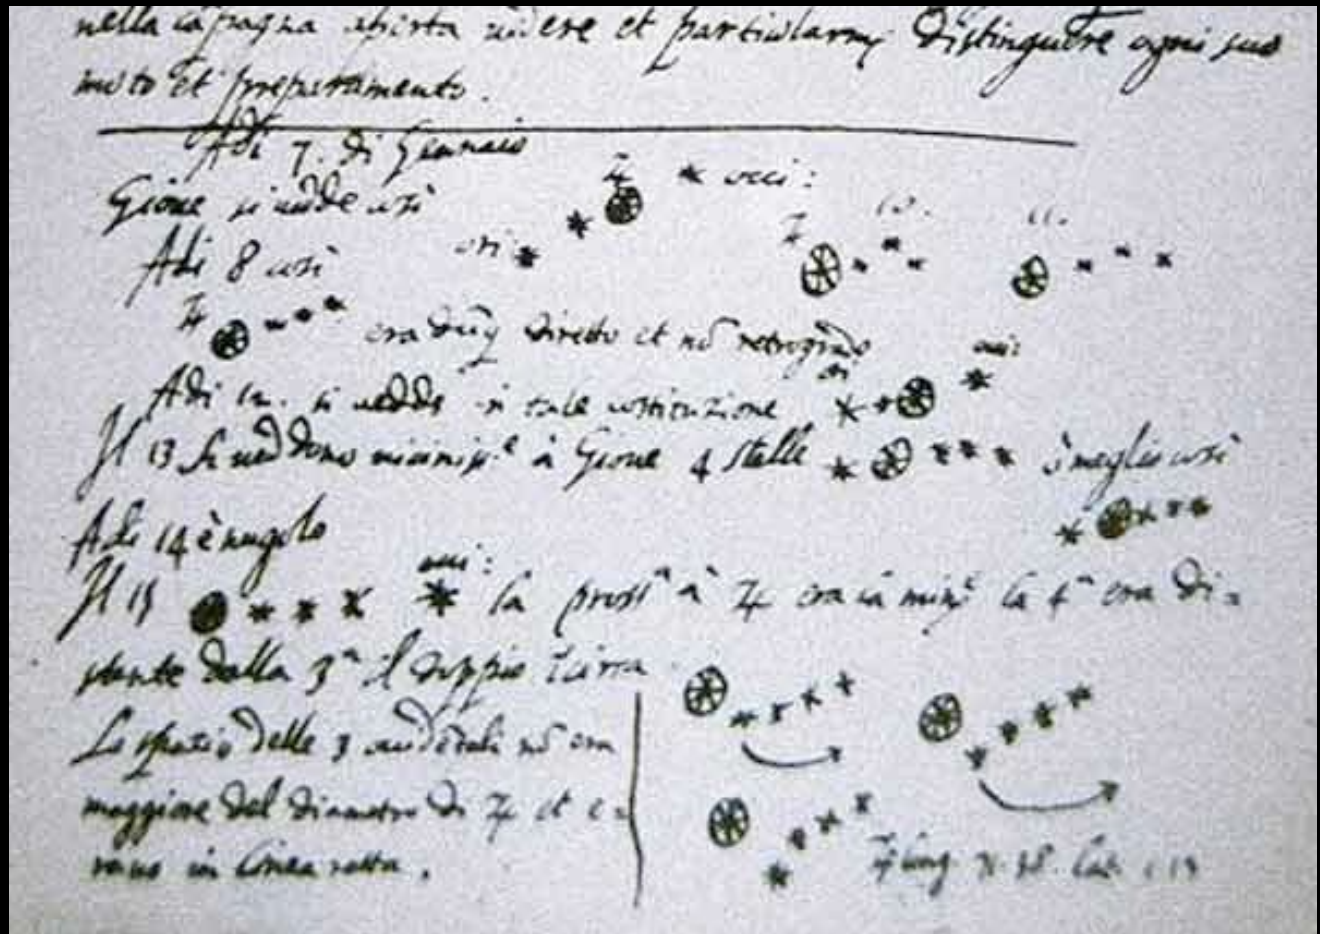 nella cāpagna aperta uedere et particularmᵉ distinguere ogni suo
moto et preparamento.
Adi 7. di Gennaio
Gioue si uede così ♃ occi:
Adi 8 così ori ♃ 10. 11.
♃ era dūq̄ diretto et nō retrogrado
Adi 12. si uedde in tale costituzione ori occi:
Il 13 si ueddono minimisᵉ à Gioue 4 stelle ò meglio così
Adi 14 è nugolo
Il 15 occi: la prossᵃ à ♃ era la minᵉ la 4ᵃ era di=
stante dalla 3ᵃ il doppio
Lo spazio delle 3 occidētali nō era
maggiore del diametro di ♃ et e=
rano in linea retta.
♃ long. 71. 38. Lat. 1. 13